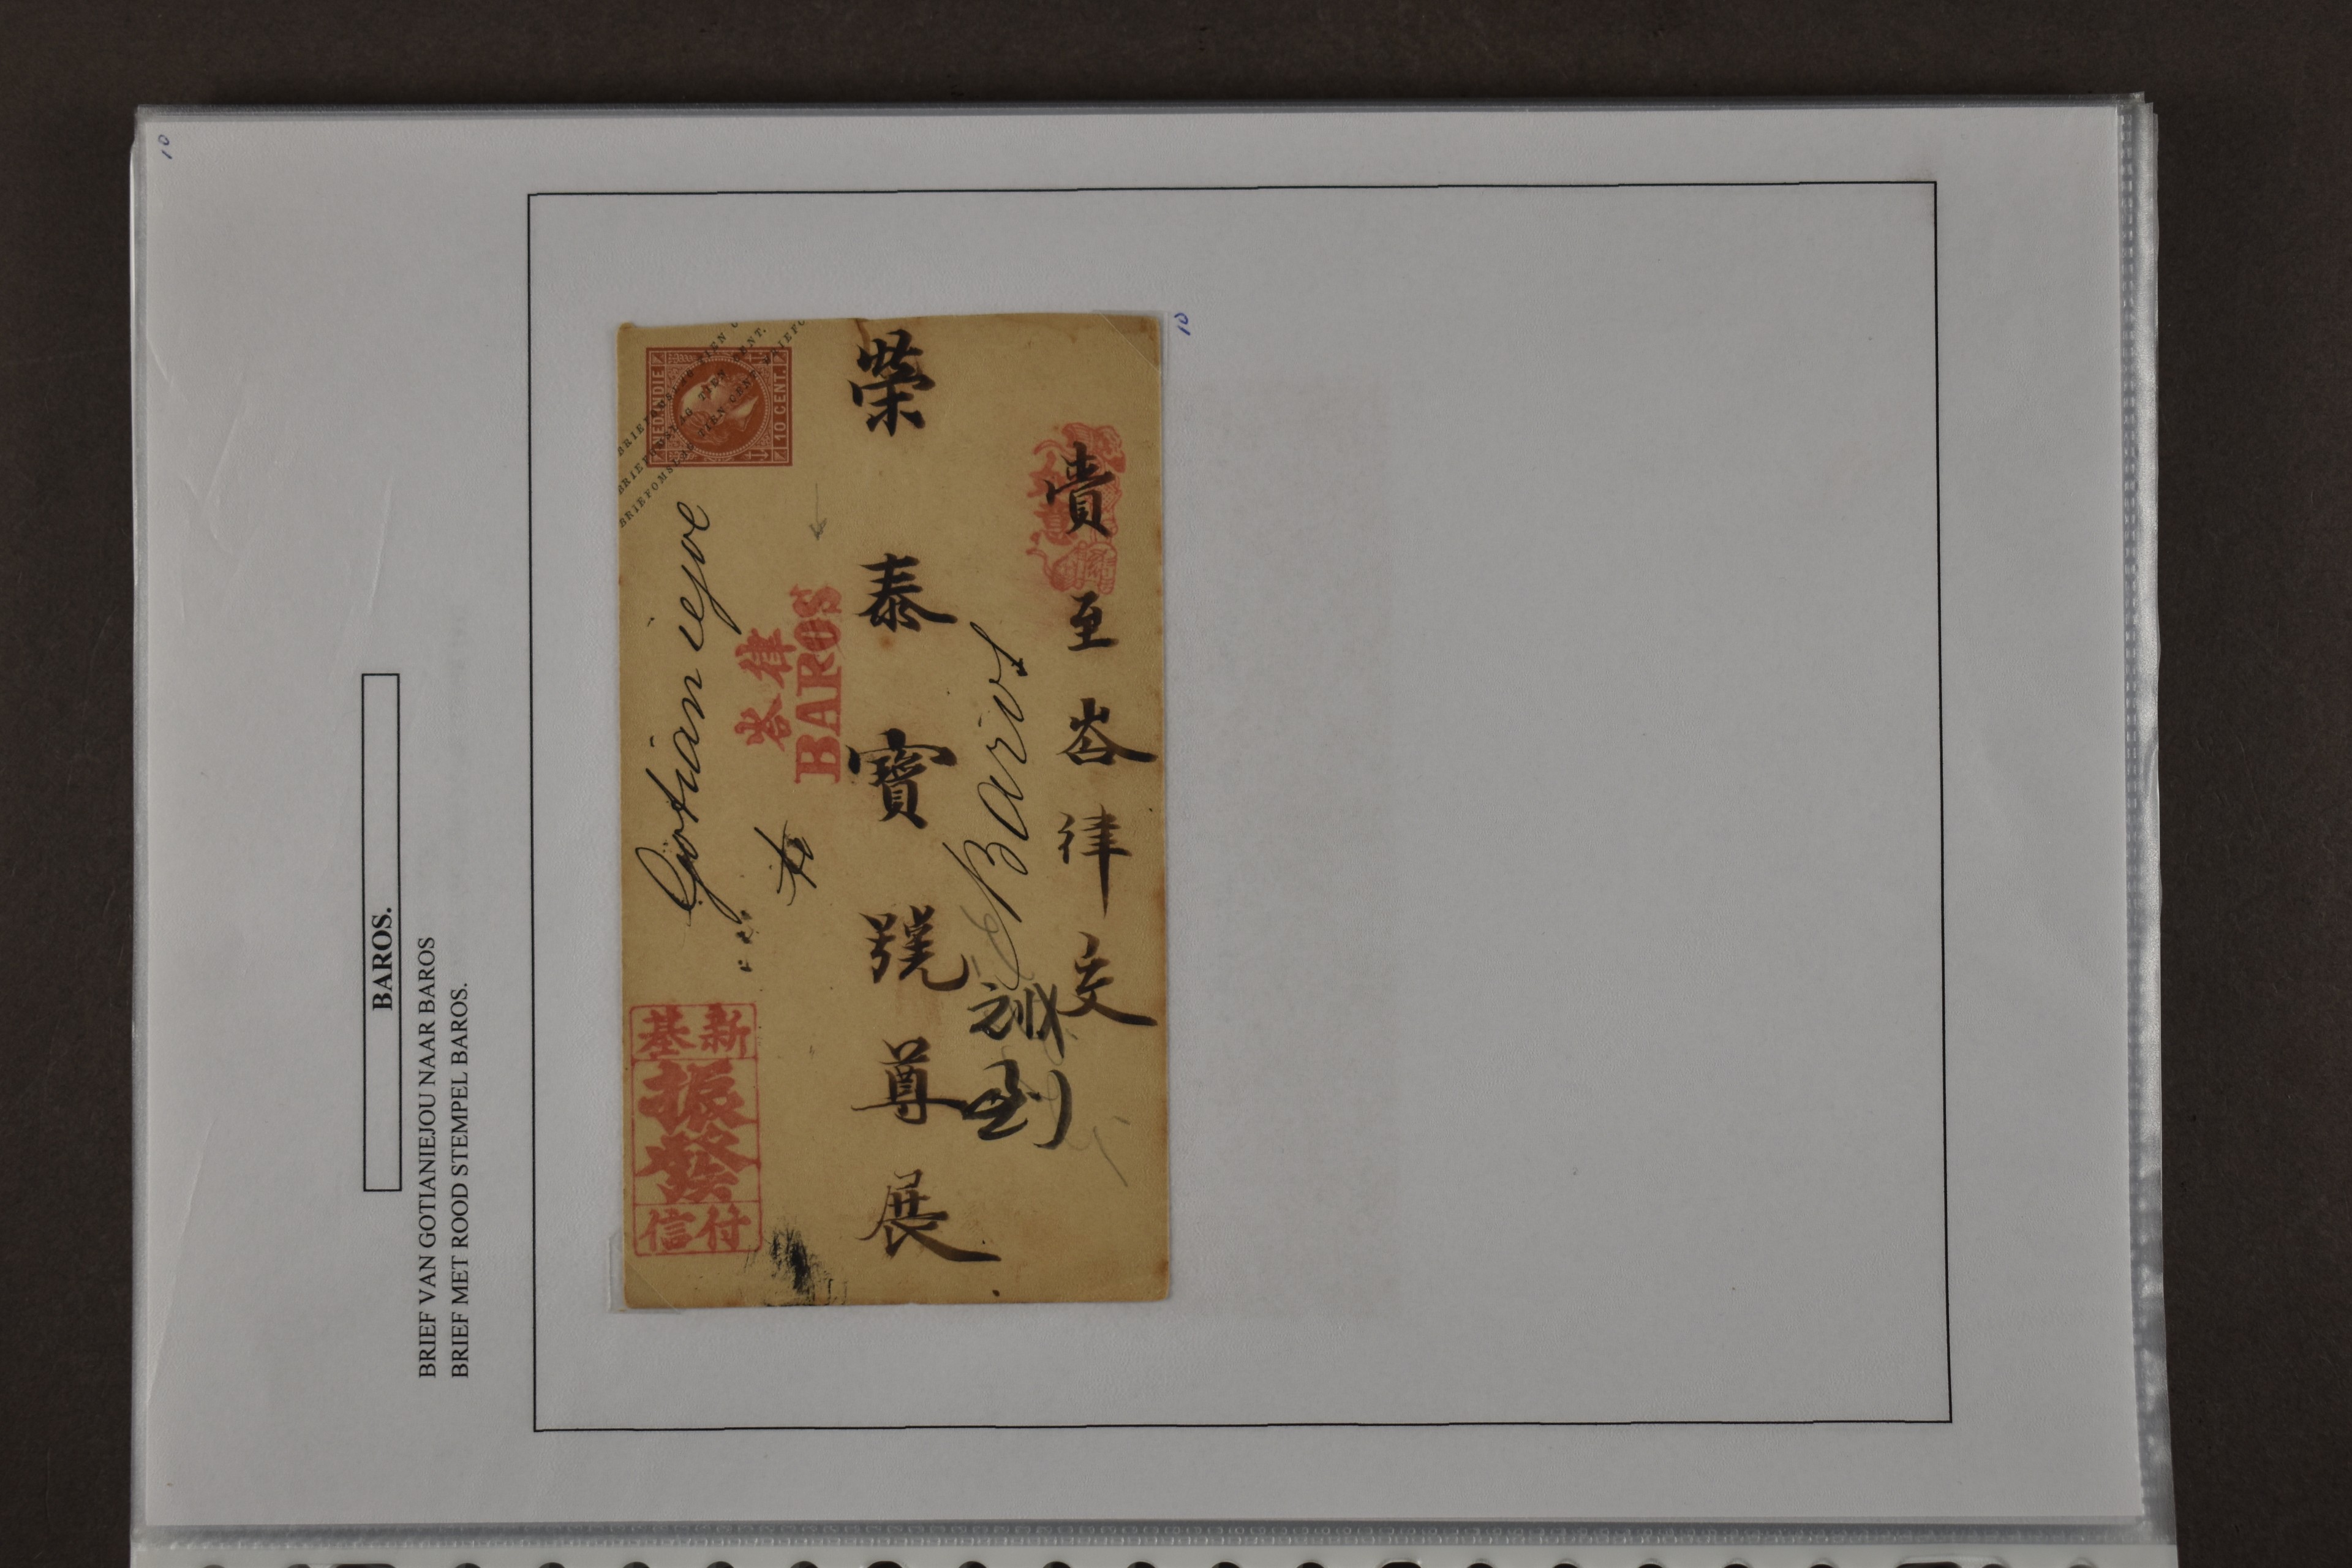 10
BAROS.
BRIEF VAN GOTIANIEJOU NAAR BAROS
BRIEF MET ROOD STEMPEL BAROS.
NED. INDIE
10 CENT.
BRIEFOMSLAG TIEN CENT.
BRIEFOMSLAG TIEN CENT.
BRIEFOMSLAG TIEN CENT.
Gotianiejoe
峇律
BAROS
新基
振發
付信
至峇律交
榮泰寶號尊展
Baros
10